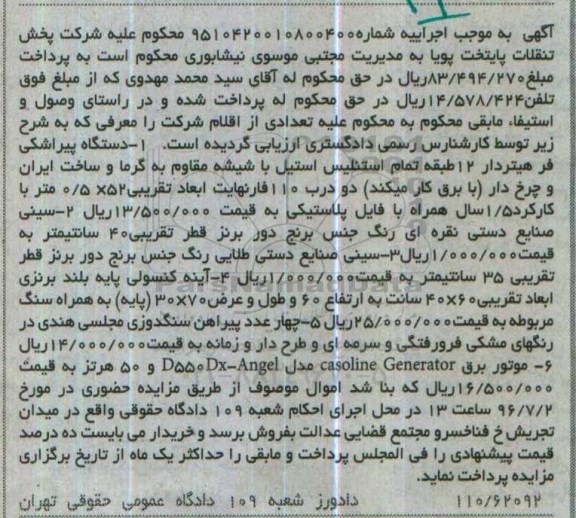 آگهی به موجب اجراییه شماره۹۵۱۰۴۲۰۰۱۰۸۰۰۴۰۰ محکوم علیه شرکت پخش
تنقلات پایتخت پویا به مدیریت مجتبی موسوی نیشابوری محکوم است به پرداخت
مبلغ۸۳/۴۹۴/۲۷۰ریال در حق محکوم له آقای سید محمد مهدوی که از مبلغ فوق
تلفن۱۴/۵۷۸/۴۲۴ریال در حق محکوم له پرداخت شده و در راستای وصول و
استیفاء مابقی محکوم به محکوم علیه تعدادی از اقلام شرکت را معرفی که به شرح
زیر توسط کارشنارس رسمی دادگستری ارزیابی گردیده است. ۱-دستگاه پیراشکی
فر هیتردار ۱۲طبقه تمام استنلیس استیل با شیشه مقاوم به گرما و ساخت ایران
و چرخ دار (با برق کار میکند) دو درب ۱۱۰فارنهایت ابعاد تقریبی۵۲× ۰/۵ متر با
کارکرد۱/۵سال همراه با فایل پلاستیکی به قیمت ۱۳/۵۰۰/۰۰۰ریال ۲-سینی
صنایع دستی نقره ای رنگ جنس برنج دور برنز قطر تقریبی۴۰ سانتیمتر به
قیمت۱/۰۰۰/۰۰۰ریال۳-سینی صنایع دستی طلایی رنگ جنس برنج دور برنز قطر
تقریبی ۳۵ سانتیمتر به قیمت۱/۰۰۰/۰۰۰ریال ۴-آینه کنسولی پایه بلند برنزی
ابعاد تقریبی۶۰×۴۰ سانت به ارتفاع ۶۰ و طول و عرض۷۰×۳۰ (پایه) به همراه سنگ
مربوطه به قیمت۲۵/۰۰۰/۰۰۰ریال ۵-چهار عدد پیراهن سنگدوزی مجلسی هندی در
رنگهای مشکی فرورفتگی و سرمه ای و طرح دار و زمانه به قیمت۱۴/۰۰۰/۰۰۰ریال
۶- موتور برق casoline Generator مدل D۵۵۰Dx-Angel و ۵۰ هرتز به قیمت
۱۶/۵۰۰/۰۰۰ریال که بنا شد اموال موصوف از طریق مزایده حضوری در مورخ
۹۶/۷/۲ ساعت ۱۳ در محل اجرای احکام شعبه ۱۰۹ دادگاه حقوقی واقع در میدان
تجریش خ فناخسرو مجتمع قضایی عدالت بفروش برسد و خریدار می بایست ده درصد
قیمت پیشنهادی را فی المجلس پرداخت و مابقی را حداکثر یک ماه از تاریخ برگزاری
مزایده پرداخت نماید.
۱۱۰/۶۲۰۹۲ دادورز شعبه ۱۰۹ دادگاه عمومی حقوقی تهران